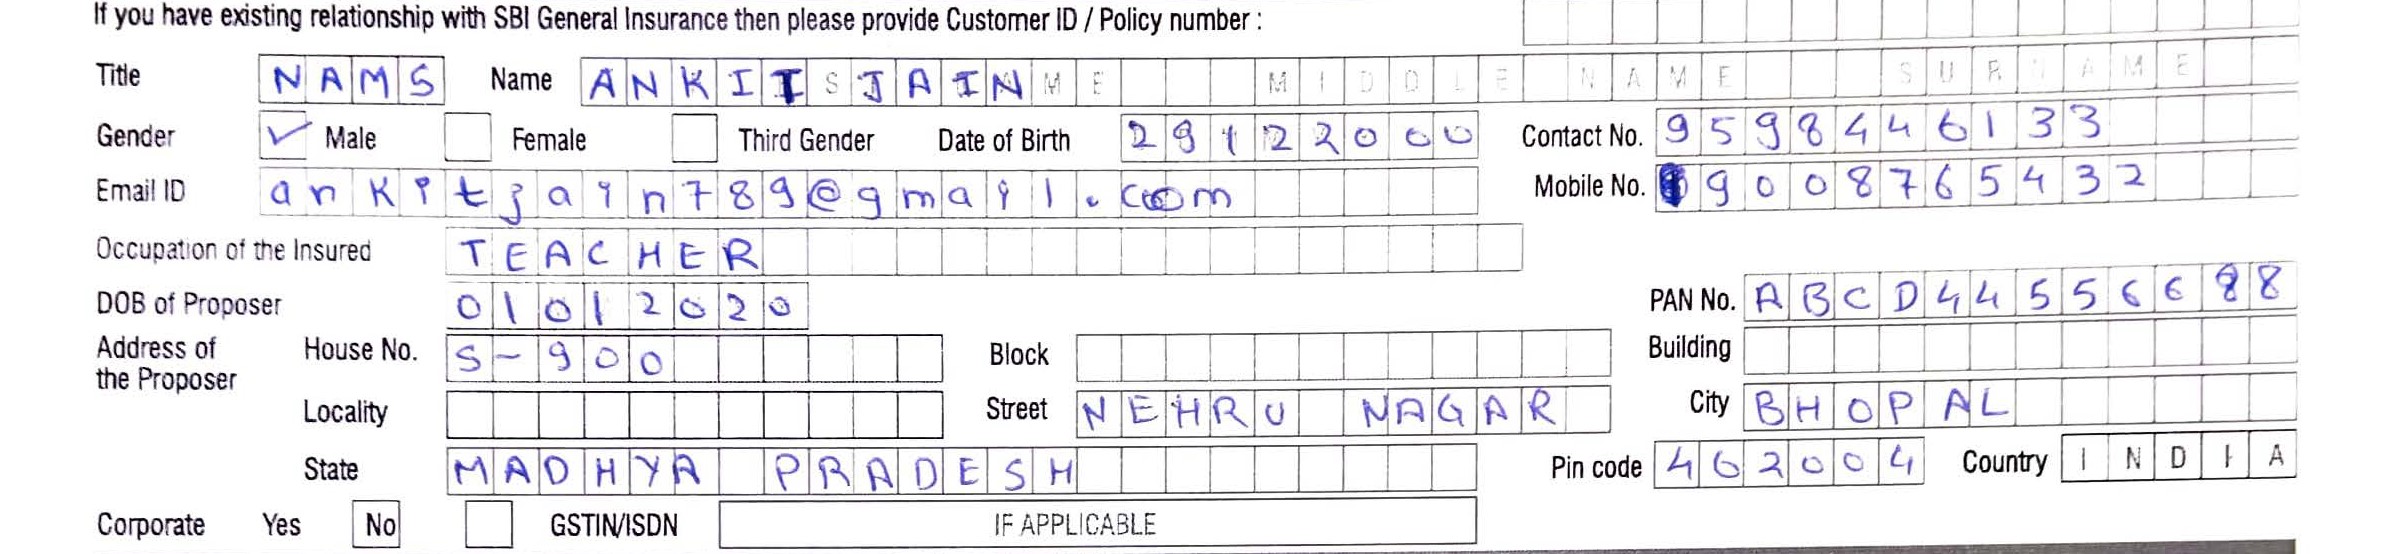 If you have existing relationship with SBI General Insurance then please provide Customer ID / Policy number :
Title NAMS Name ANKIT JAIN MIDDLE NAME SURNAME
Gender ✓ Male Female Third Gender Date of Birth 29122000 Contact No. 9598446133
Email ID ankitjain789@gmail.com Mobile No. 9008765432
Occupation of the Insured TEACHER
DOB of Proposer 01012020 PAN No. ABCD44556688
Address of the Proposer House No. S-900 Block Building
Locality Street NEHRU NAGAR City BHOPAL
State MADHYA PRADESH Pin code 462004 Country INDIA
Corporate Yes No GSTIN/ISDN IF APPLICABLE